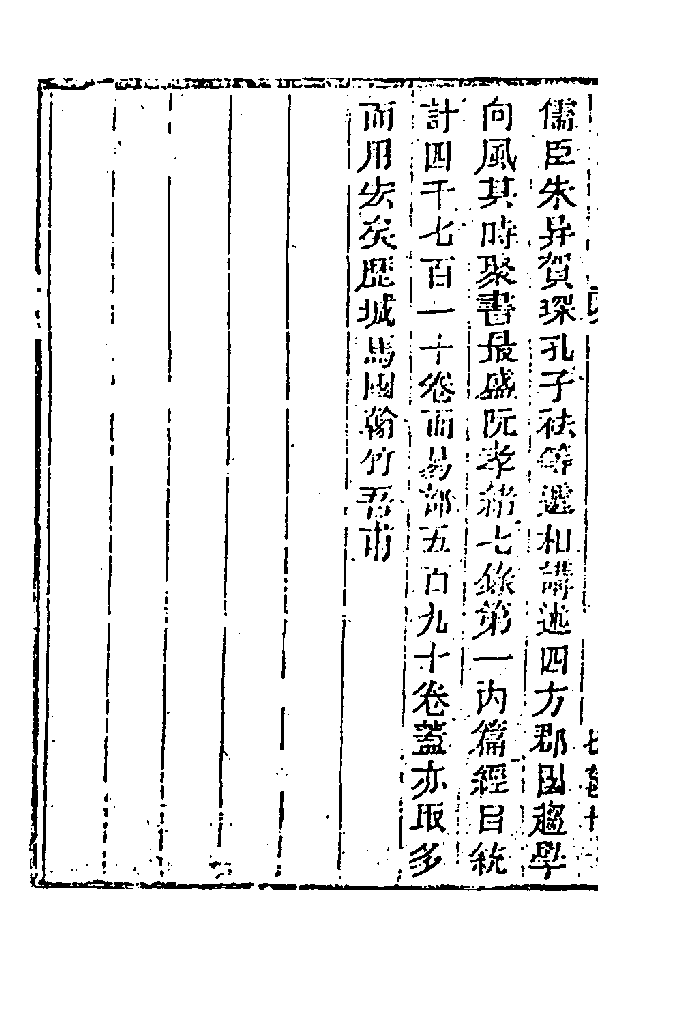 儒臣朱异賀琛孔子祛等遞相講述四方郡國趨學
向風其時聚書最盛阮孝緒七錄第一內篇經目統
計四千七百一十卷而易部五百九十卷蓋亦取多
而用宏矣歷城馬國翰竹吾甫